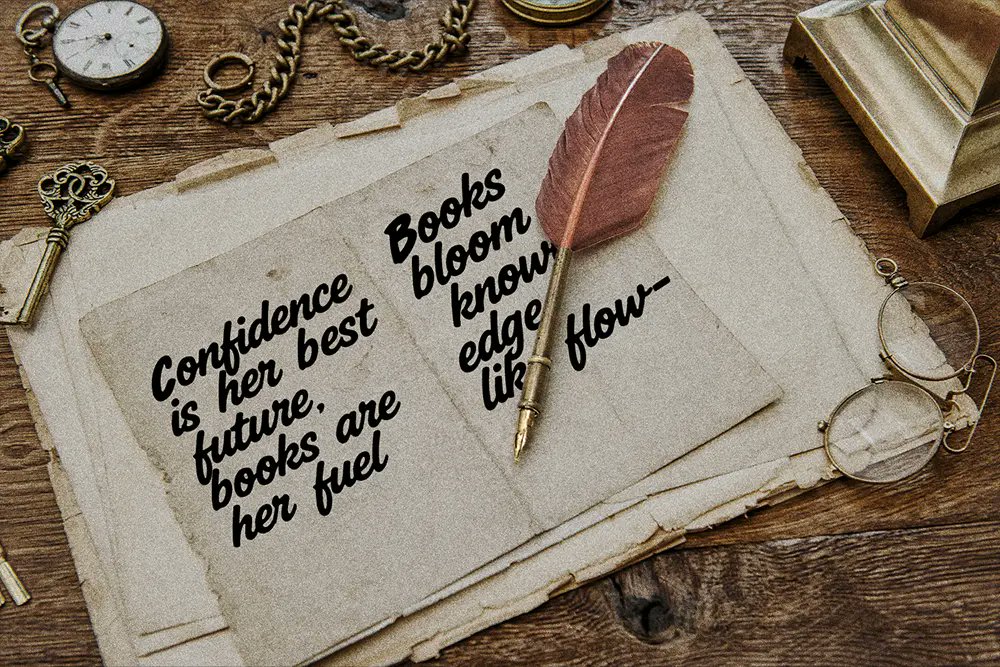 Confidence
is her best
future,
books are
her fuel
Books
bloom
know
edge
like flow-